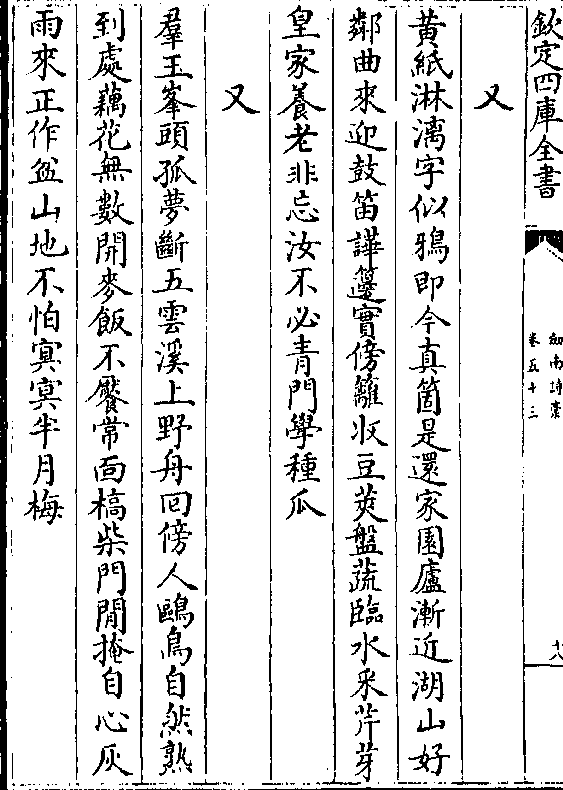 欽定四庫全書
劍南詩稾
卷五十三
十八
又
黃紙淋漓字似鴉即今真箇是還家園廬漸近湖山好
鄰曲來迎鼓笛譁籩實傍籬收豆莢盤蔬臨水采芹芽
皇家養老非忘汝不必青門學種瓜
又
羣玉峯頭孤夢斷五雲溪上野舟回傍人鷗鳥自然熟
到處藕花無數開麥飯不饜常面槁柴門閒掩自心灰
雨來正作盆山地不怕冥冥半月梅